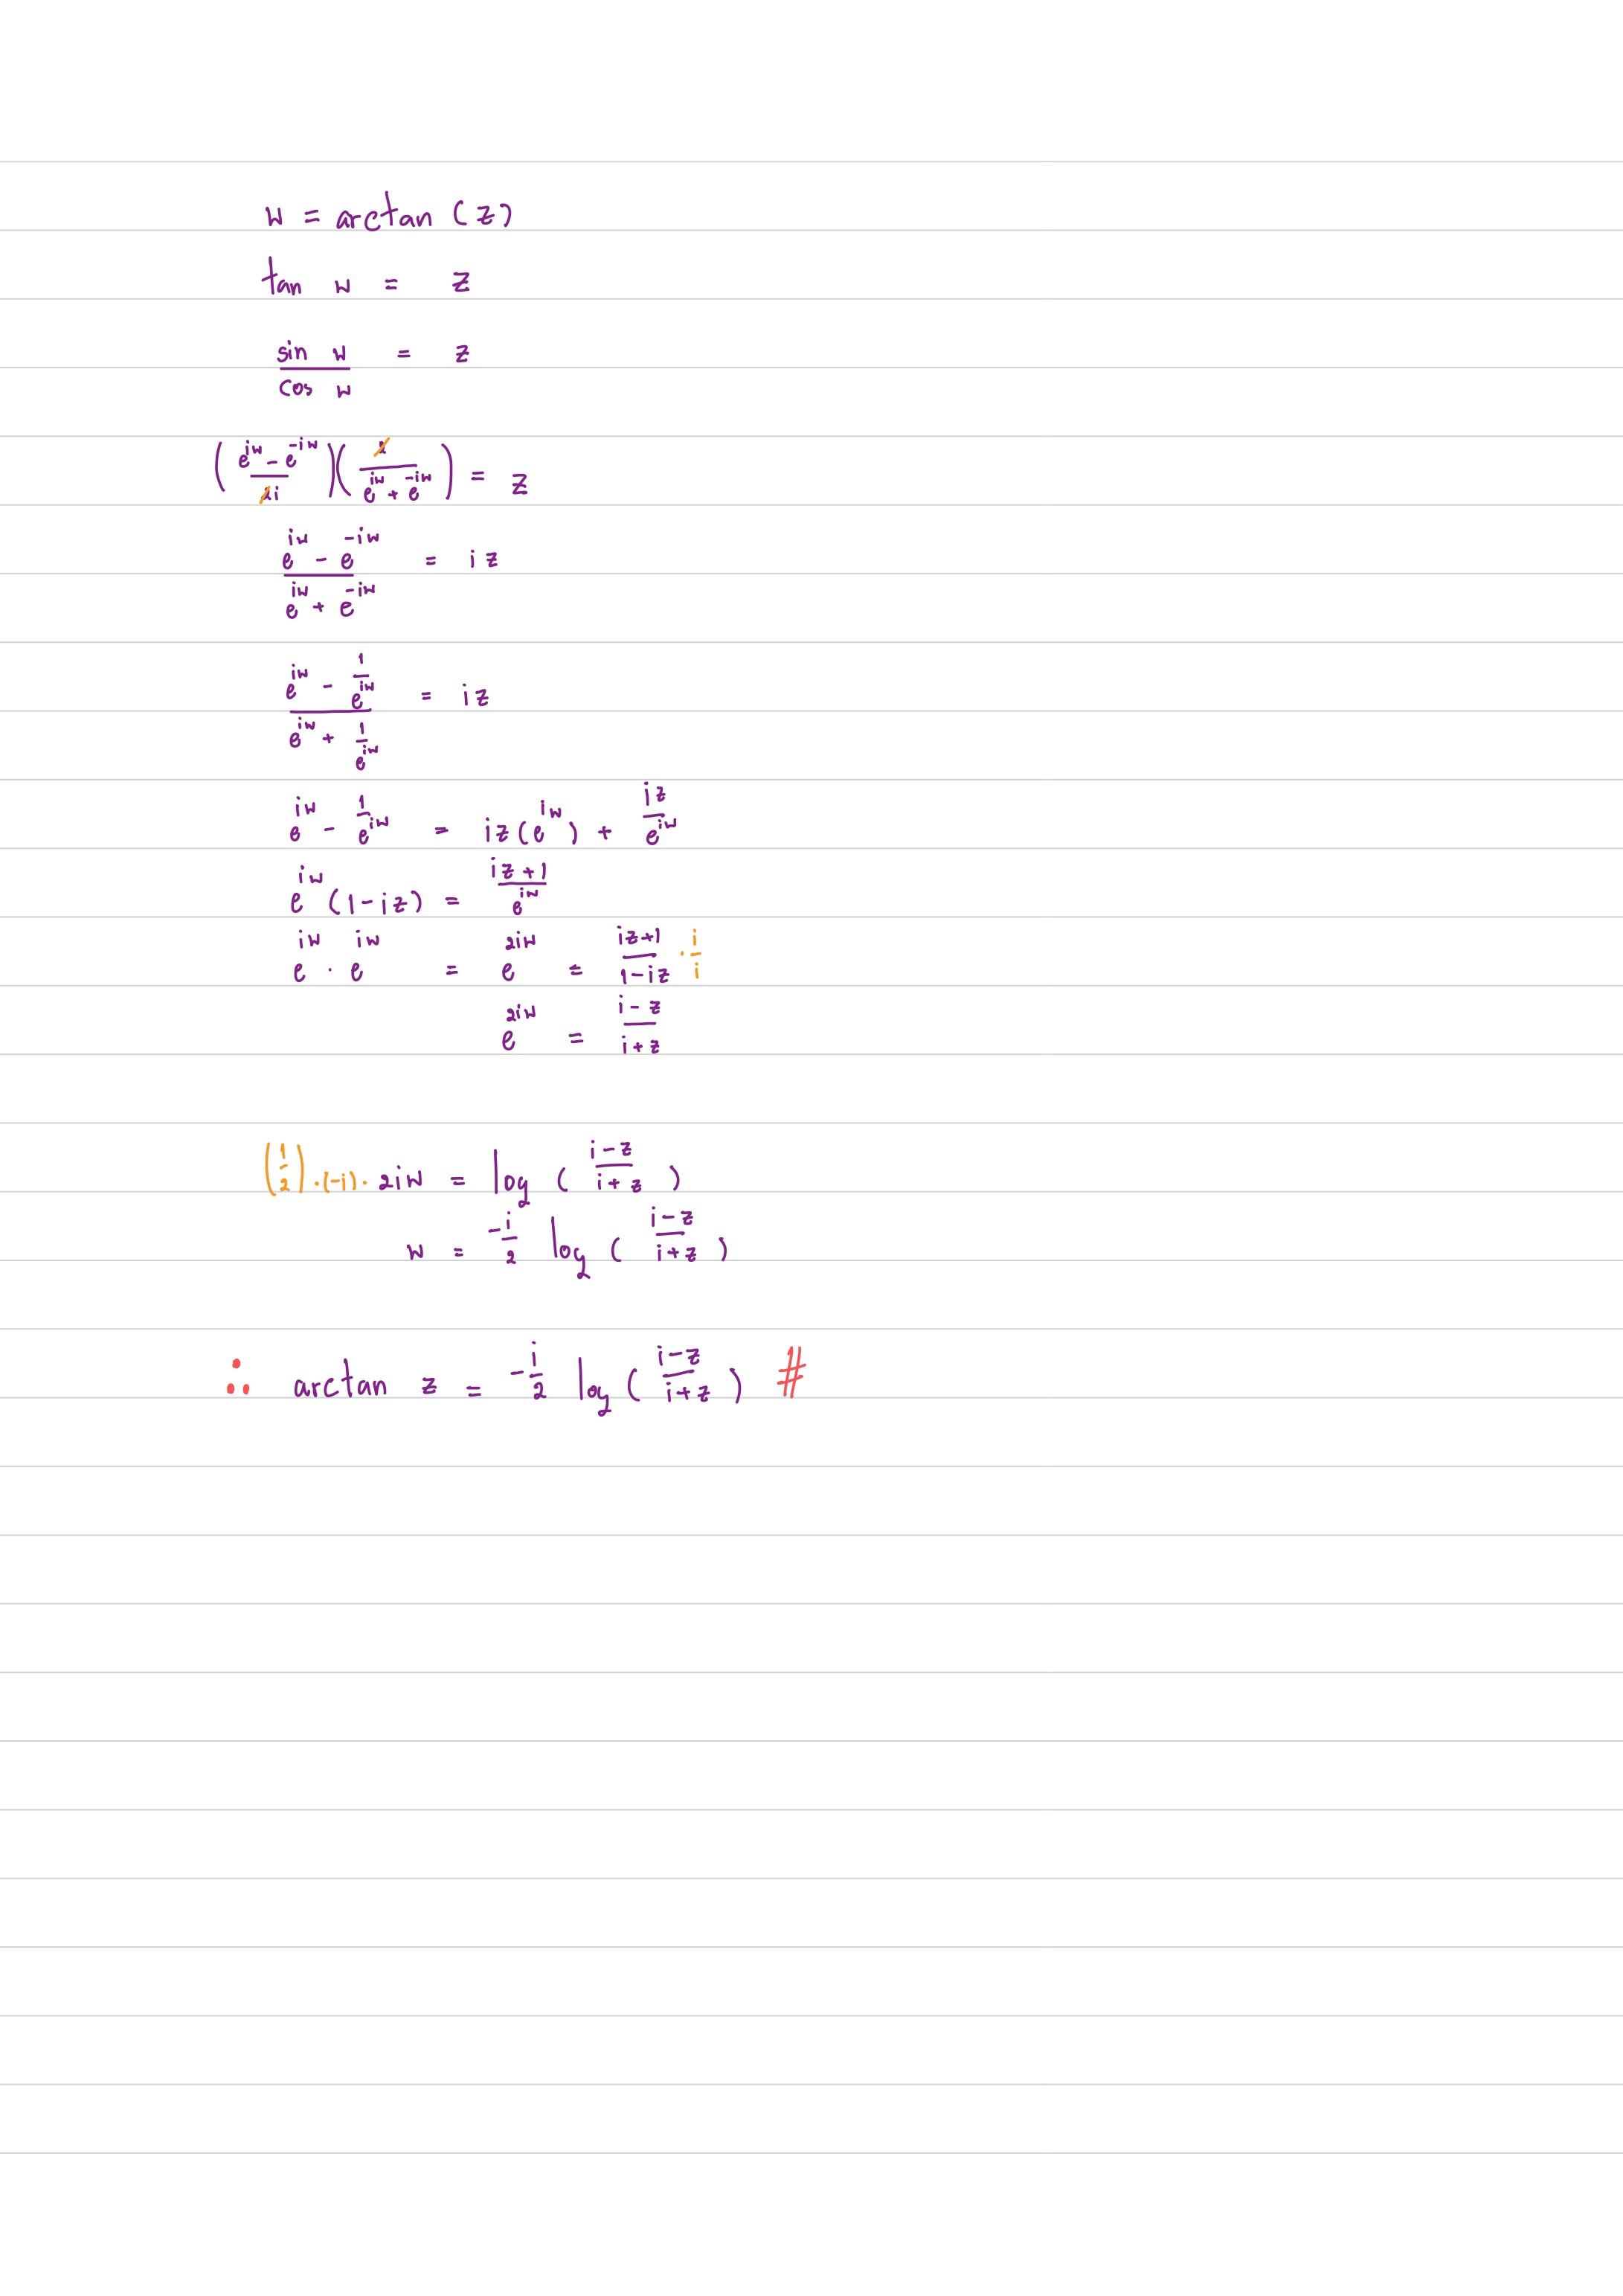 w = arctan (z)
tan w = z
sin w / cos w = z
((e^{iw} - e^{-iw}) / 2i)(2 / (e^{iw} + e^{-iw})) = z
(e^{iw} - e^{-iw}) / (e^{iw} + e^{-iw}) = iz
(e^{iw} - 1/e^{iw}) / (e^{iw} + 1/e^{iw}) = iz
e^{iw} - 1/e^{iw} = iz(e^{iw}) + iz/e^{iw}
e^{iw} (1-iz) = (iz+1)/e^{iw}
e^{iw} · e^{iw} = e^{2iw} = (iz+1)/(1-iz) · i/i
e^{2iw} = (i-z)/(i+z)
(1/2)·(-i)· 2iw = log ((i-z)/(i+z))
w = -i/2 log ((i-z)/(i+z))
∴ arctan z = -i/2 log((i-z)/(i+z)) #